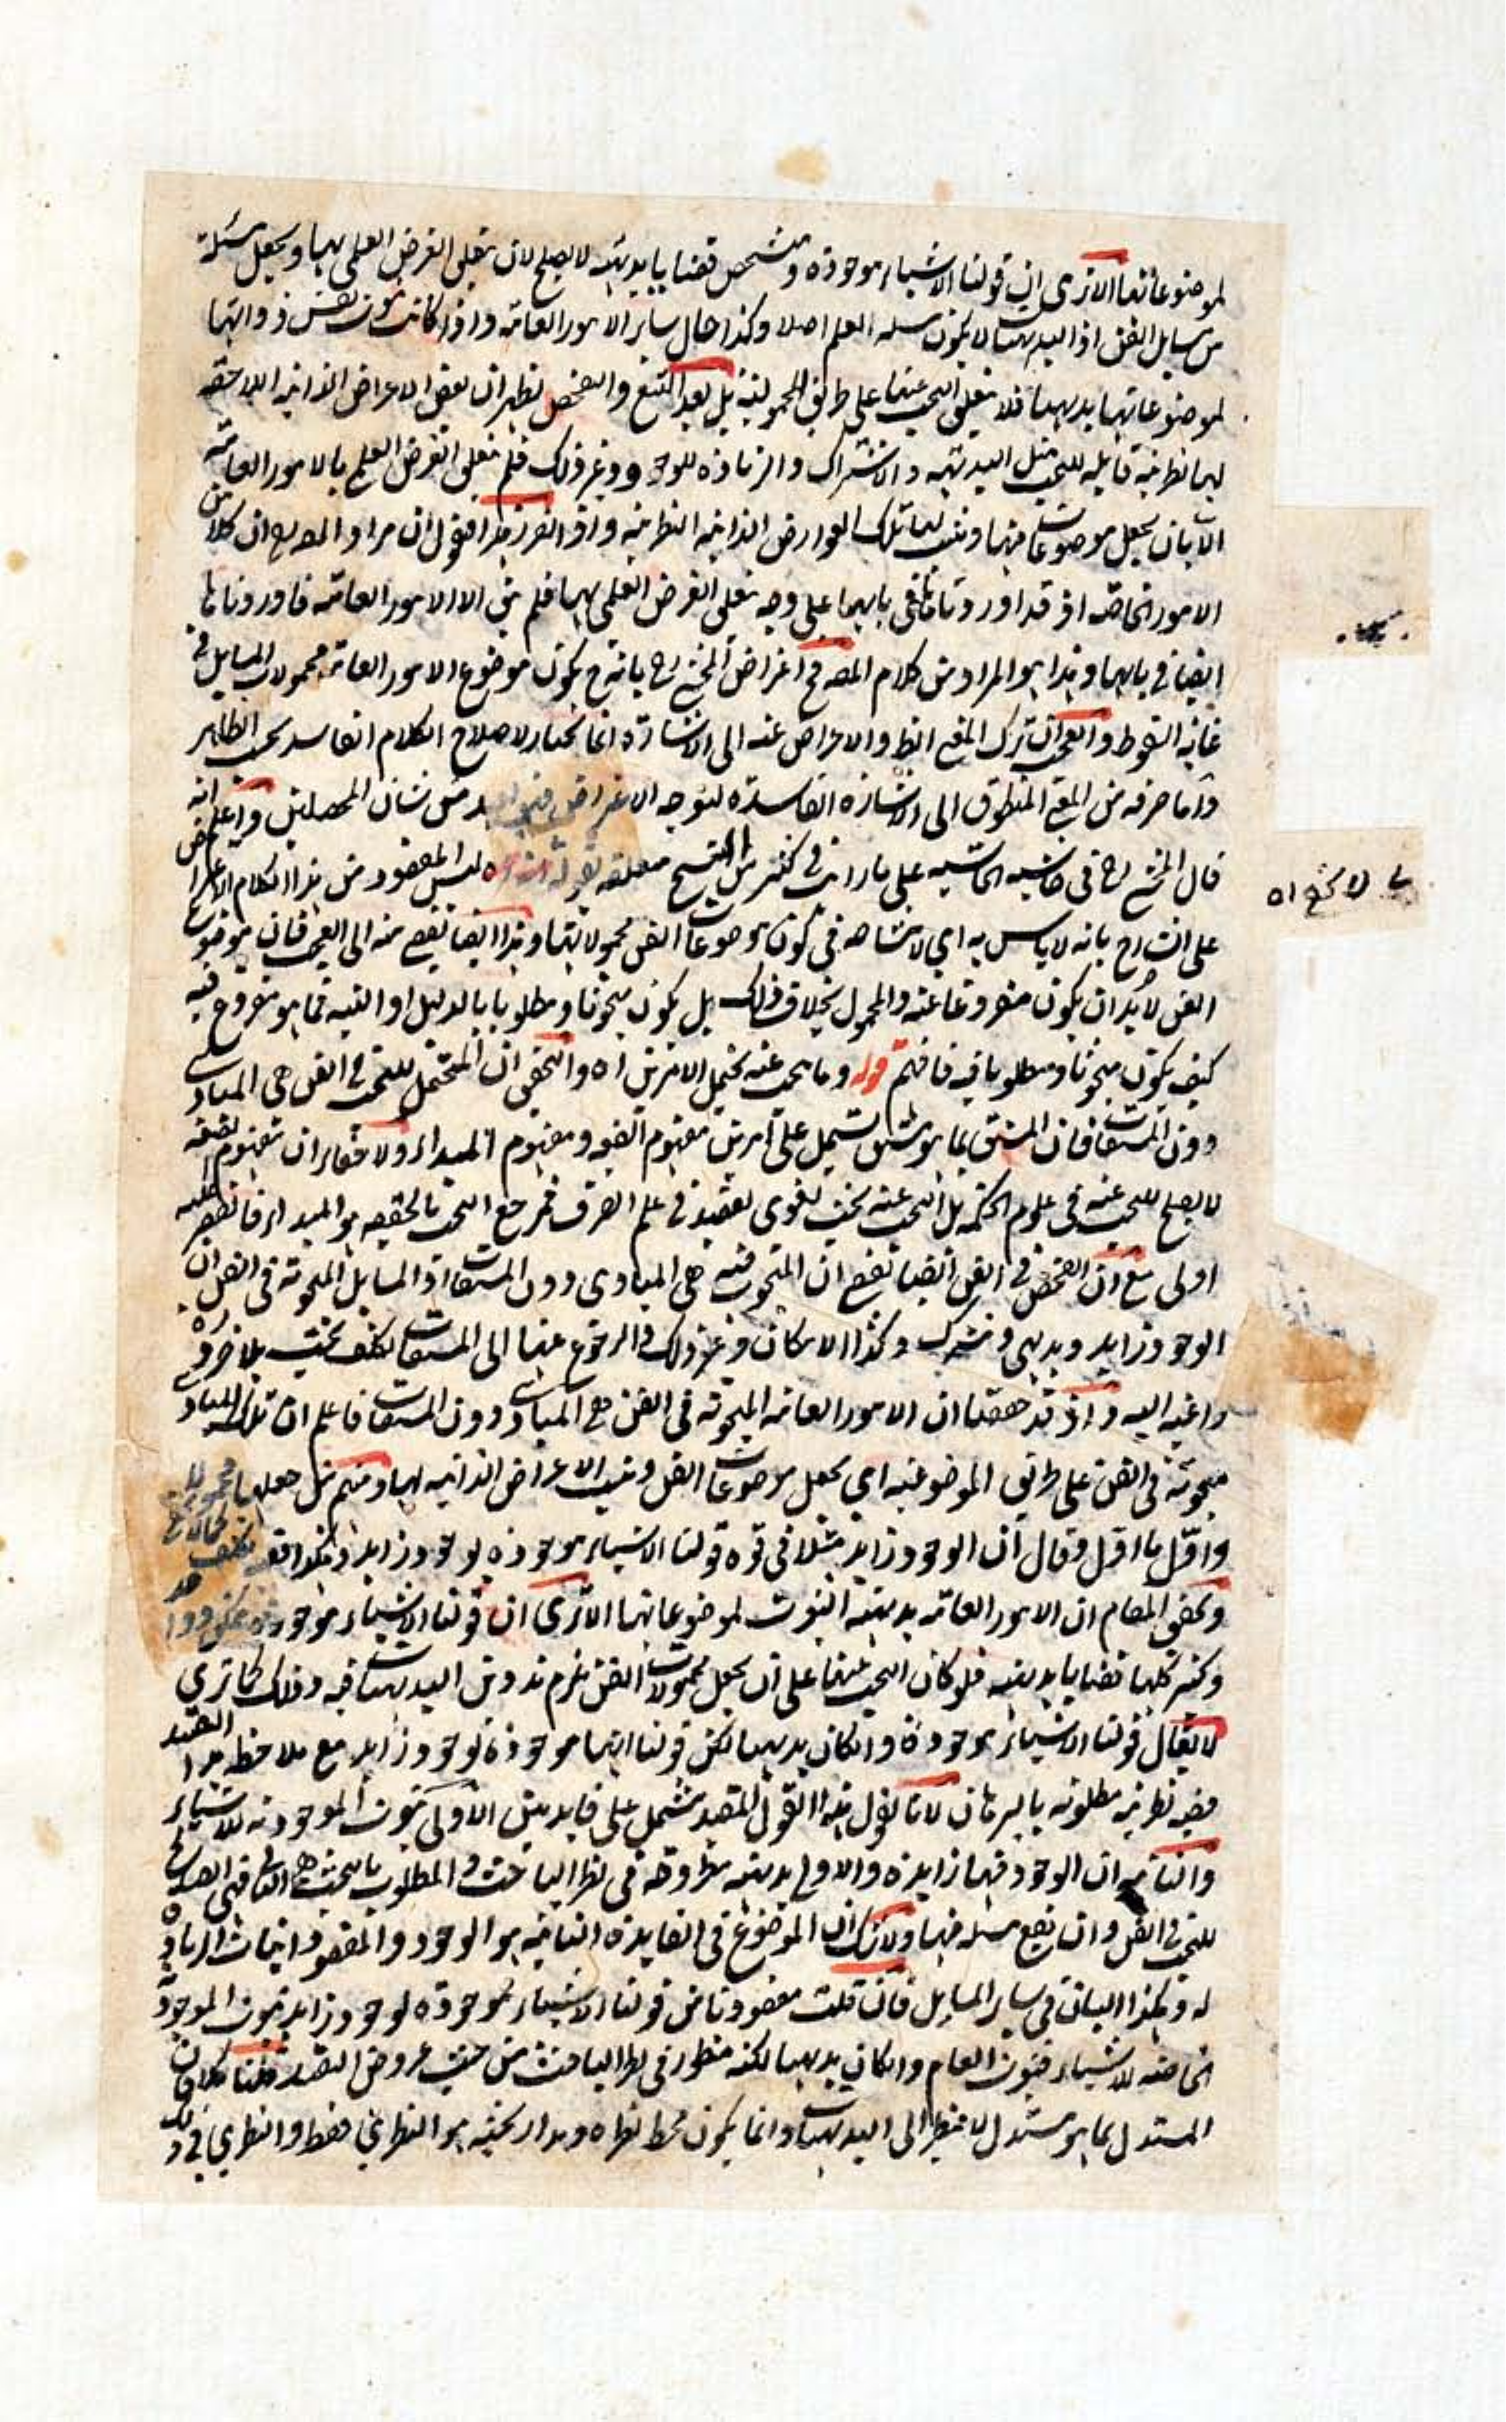 لموضوعاتها الا ترى ان قولنا الاشياء موجودة ومتشخص قضايا بديهية لا يصلح لان يتعلق الغرض العلمي بها ويجعل مسئلة
من مسايل الفن اذ البديهيات لا يكون مسئلة العلم اصلا وكذا حال ساير الامور العامة واذا كانت ثبوت نفس ذواتها
لموضوعاتها بديهيا فلا يتعلق البحث عنها على طريق المحمولية بل بعد التتبع والتفحص يظهر ان بعض الاعراض الذاتية اللاحقة
لها نظرية قابلة للبحث مثل البديهية والاشتراك والزيادة للوجود وغير ذلك فلم يتعلق الغرض العلمي بالامور العامة
الا بان يجعل موضوعات فيها ويثبت لها تلك العوارض الذاتية النظرية واذ تقرر هذا فنقول ان مراد المصه ان كلا من
الامور الخاصة اذ قد اوردناها في بابها على وجه تعلق الغرض العلمي بها فلم يبق الا الامور العامة فاوردناها
ايضا في بابها وهذا هو المراد من كلام المصه فح اعتراض المحشي رح بانه ح يكون موضوع الامور العامة محمولات المسايل في
غاية السقوط والعجب ان ترك المعنى الظ والاعراض عنه الى الاشارة انما يختار لاصلاح الكلام الفاسد بحسب الظاهر
واما صرفه من المعنى المنطوق الى الاشارة الفاسدة ليتوجه الاعتراض فبعيد من شان المحصلين واعلم انه
قال المحشي رح في حاشية الحاشية على ما رايت في كثير من النسخ معلقه بقوله اه ليس المقصود من هذا الكلام الاعتراض
على الشارح بانه لا باس به اي لا مشاحة في كون موضوعات الفن محمولاتها وهذا ايضا يفضي منه الى العجب فان موضوع
الفن لابد ان يكون مفروغا عنه والمحمول بخلاف ذلك بل يكون مبحوثا ومطلوبا بالدليل او التنبيه فما هو مفروغ فيه
كيف يكون مبحوثا ومطلوبا فيه فافهم قوله وما يبحث عنه يحتمل الامرين اه والتحقيق ان المحتمل للبحث في الفن هي المبادي
دون المشتقات فان المشتق بما هو مشتق يشتمل على امرين مفهوم الصيغة ومفهوم المبداء ولا خفاء ان مفهوم الصيغة
لا يصلح للبحث عنه في علوم الحكمة بل البحث عنه بحث لغوي يفيد في علم الصرف فمرجع البحث بالحقيقة هو المبداء فالنظر اليه
اولى مع ان الفحص في الفن ايضا يفضي ان المبحوث فيه هي المبادي دون المشتقات اذ المسايل المبحوثة في الفن ان
الوجود زايد وبديهي ومشترك وكذا الامكان وغير ذلك فالرجوع عنها الى المشتقات تكلف بحت بلا ضرورة
داعية اليه واذ قد حققنا ان الامور العامة المبحوثة في الفن هي المبادي دون المشتقات فاعلم ان تلك المبادي
مبحوثة في الفن على طريق الموضوعية اي يجعل موضوعات الفن ويثبت الاعراض الذاتية لها ومنهم من جعلها محمولا
واول ما اول وقال ان الوجود زايد مثلا في قوة قولنا الاشياء موجودة بوجود زايد وهكذا
وتحقيق المقام ان الامور العامة بديهية الثبوت لموضوعاتها الا ترى ان قولنا الاشياء موجودة وممكن وواحد
وكثير كلها قضايا بديهية فلو كان البحث عنها على ان يجعل محمولات الفن يلزم تدوين البديهيات فيه وذلك كما ترى
لا يقال قولنا الاشياء موجودة وان كان بديهيا لكن قولنا انها موجودة بوجود زايد مع ملاحظة هذا القيد
قضية نظرية مطلوبة بالبرهان لانا نقول هذا القول المقيد مشتمل على فايدتين الاولى ثبوت الموجودية للاشياء
والثانية ان الوجود فيها زايدة والاولى بديهية مطروحة في نظر الباحث والمطلوب بالبحث هي الثانية فهي الصالح
للبحث في الفن وان يقع مسئلة فيها ولا شك ان الموضوع في الفايدة الثانية هو الوجود والمقصود اثبات الزيادة
له وهكذا البيان في ساير المسايل فان قلت مقصودنا من قولنا الاشياء موجودة بوجود زايد ثبوت الموجودية
الخاصة للاشياء فثبوت العام وان كان بديهيا لكنه منظور في نظر الباحث من حيث عروض القيد قلنا كلا فان
المستدل بما هو مستدل لا ينظر الى البديهيات وانما يكون محط نظره ومدار بحثه هو النظري فقط والنظري في ذلك
لا يخفى اه